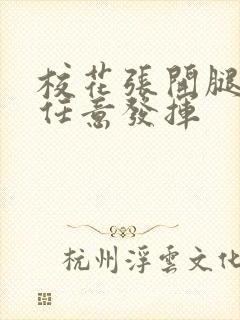 校花張開腿
任意發揮
杭州浮雲文化